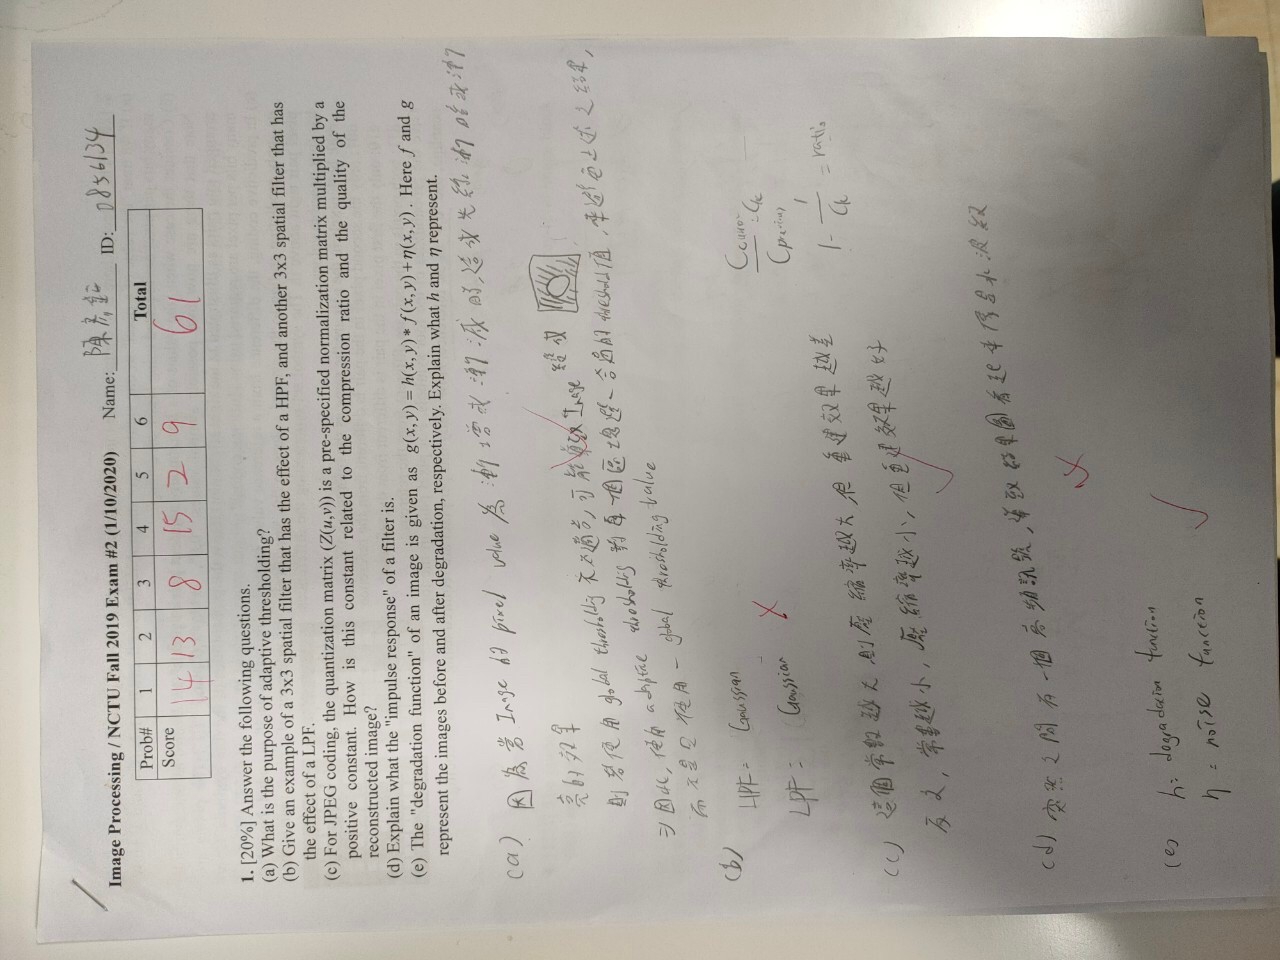 Image Processing / NCTU Fall 2019 Exam #2 (1/10/2020) Name: 陳 ID: 0856134
Prob# 1 2 3 4 5 6 Total
Score 14 13 8 15 2 9 61
1. [20%] Answer the following questions.
(a) What is the purpose of adaptive thresholding?
(b) Give an example of a 3x3 spatial filter that has the effect of a HPF, and another 3x3 spatial filter that has
the effect of a LPF.
(c) For JPEG coding, the quantization matrix (Z(u,v)) is a pre-specified normalization matrix multiplied by a
positive constant. How is this constant related to the compression ratio and the quality of the
reconstructed image?
(d) Explain what the "impulse response" of a filter is.
(e) The "degradation function" of an image is given as g(x, y) = h(x, y) * f(x, y) + η(x, y). Here f and g
represent the images before and after degradation, respectively. Explain what h and η represent.
(a) 因為當 Image 的 pixel value 為漸增或漸減時,造成光線漸暗或漸
亮的效果
則若使用 global thresholding 不太適合,可能導致 Image 變成
⇒因此,使用 adaptive thresholding 對每一個區塊選一合適的 threshold 值,來避免上述之結果,
而不是只使用一 global thresholding value
(b) HPF = Gaussian
LPF = Gaussian
Ccurrent / Cprevious = Ck
1 - 1/Ck = ratio
(c) 這個常數越大,則壓縮率越大但重建效果越差
反之,常數越小,壓縮率越小,但重建效果越好
(d) 突然之間有一個高頻訊號,導致結果圖看起來像是水波紋
(e) h: degradation function
η = noise function